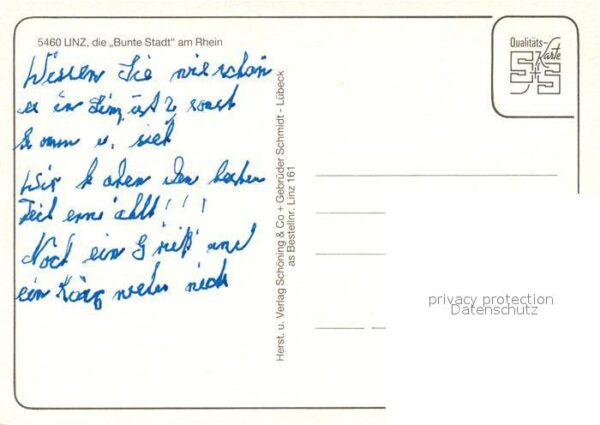 5460 LINZ, die „Bunte Stadt" am Rhein
Wissen Sie wie schön
es in Linz ist? sonst
komm u. sieh
Wir haben den besten
Teil erwählt!!!
Noch ein Gruß und
ein
Herst. u. Verlag Schöning & Co + Gebrüder Schmidt - Lübeck
as Bestellnr. Linz 161
Qualitäts-Karte
S+S
privacy protection
Datenschutz